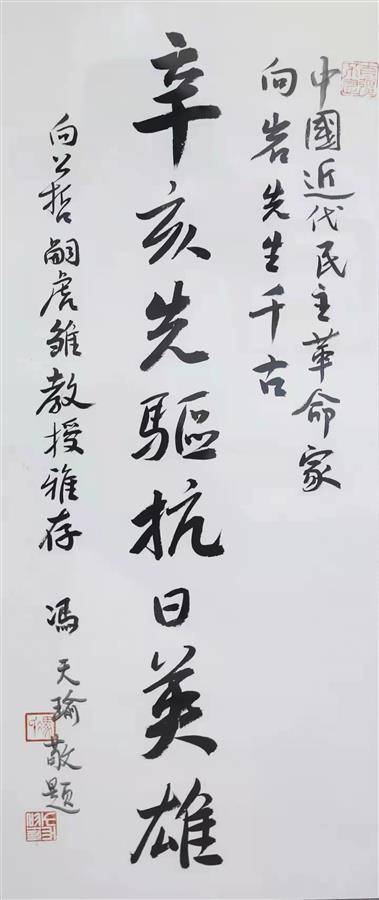 中國近代民主革命家
向岩先生千古
辛亥先驅抗日英雄
向公哲嗣虎雛教授雅存
馮天瑜敬題